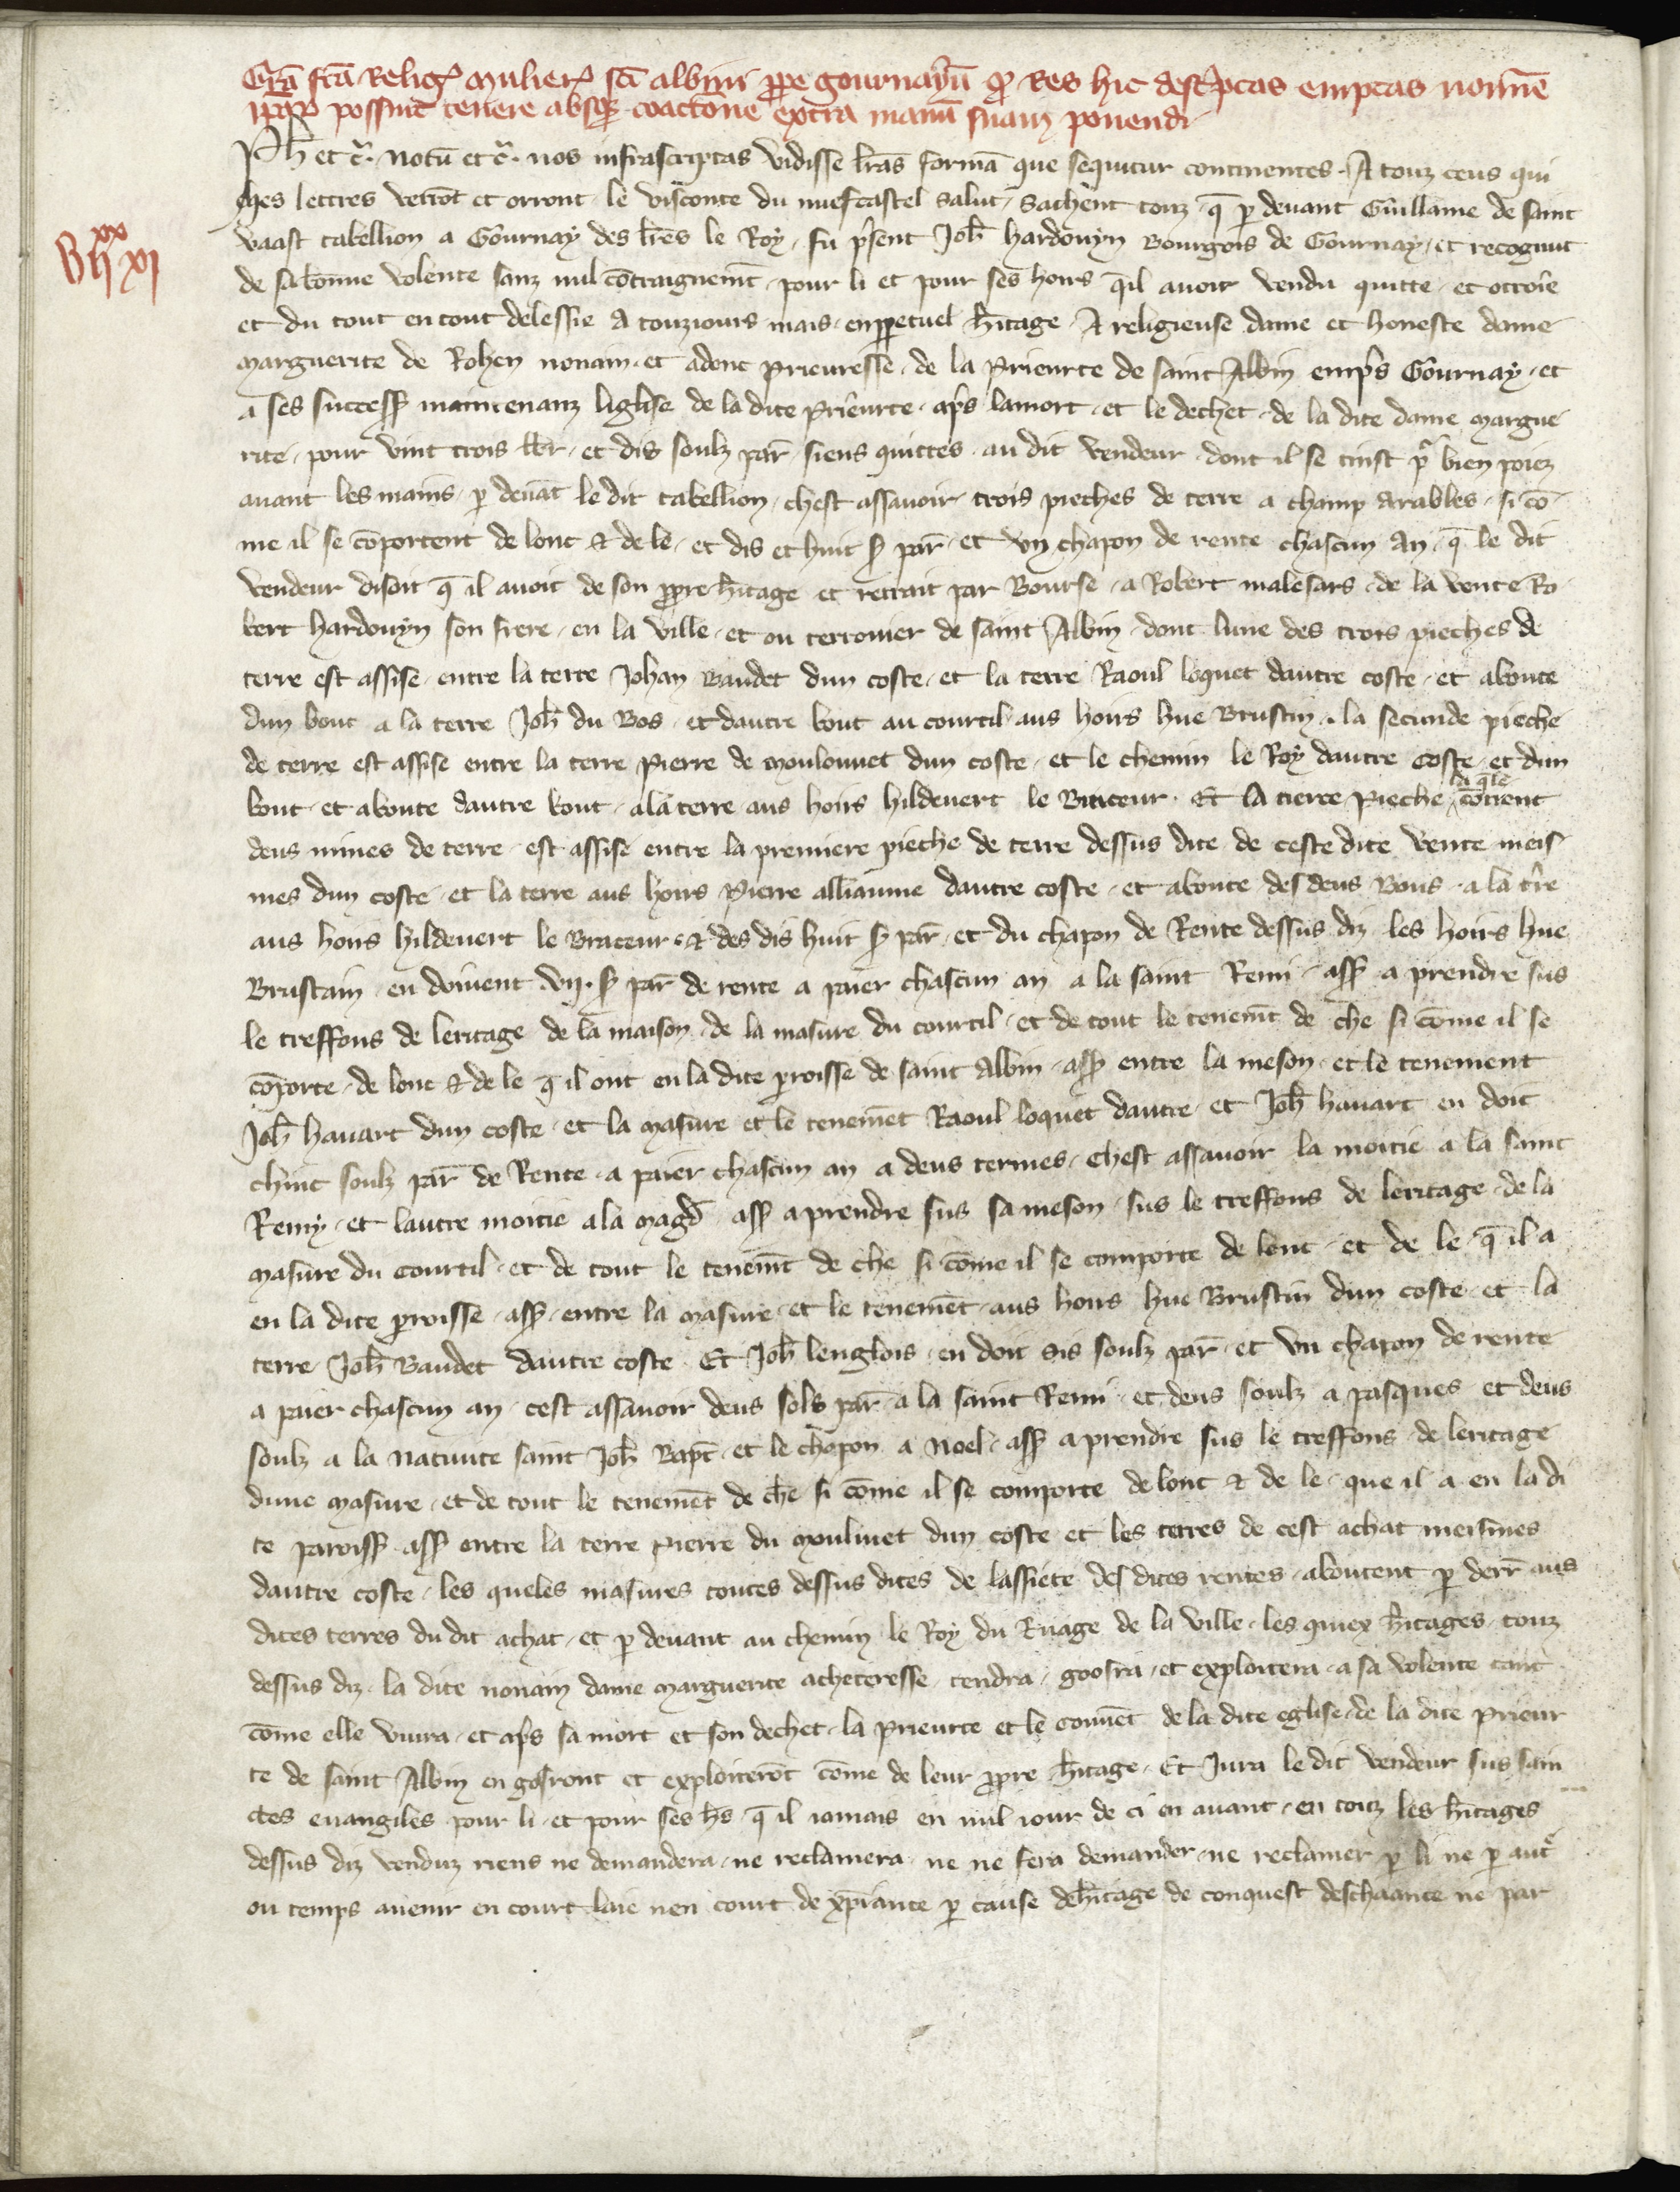 Grā fcā Religꝰ mulierꝰ scī albini ꝓpe gournayū ꝙ Res hic descͥptas emptas nomīe
ip̄ar possint tenere absqꝫ coactōne extra manū suam ponendi
Ph̄ et c̄. Notū et c̄. nos infrascriptas vidisse lrās formā que sequitur continentes. A touz ceus qui
ches lettres verrōt et orront le visconte du nuefcastel salut. Sachent touz q̄ ꝑ deuant Guillame de saint
vaast tabellion a Gournay des lrēs le Roy, fu p̄sent Joh̄ hardouyn Bourgois de Gournay, et recognut
de sa bonne volente sanz nul cōtraignemt̄ pour li et pour ses hoirs qͥl auoit vendu quitte et otroie
et du tout en tout delessie a touziours mais en ꝑpetuel h̄itage. A religieuse dame et honeste dame
Marguerite de Rohen nonain et adonc prieuresse de la Prieurte de saint Albin emp̄s Gournay et
a ses success̄ maintenanz liglise de la dite Prieurte ap̄s la mort et le dechet de la dite dame margue
rite pour vint trois lib̄r et dis soulz par̄ siens quittes au dit vendeur dont il se tinst pͬ bien poiez
auant les mains ꝑ deuāt le dit tabellion, chest assauoir trois pieches de terre a champ arables, si cō
me il se cōportent de lonc & de le et dis et huit s̄ par̄ et vn chapon de rente chascun an q̄ le dit
vendeur disoit q̄ il auoit de son ꝓpre h̄itage et retrait par Bourse a Robert malesars de la vente Ro
bert hardouyn son frere en la ville et ou terrouier de saint Albin, dont lune des trois pieches de
terre est assise entre la terre Johan Baudet dun coste et la terre Raoul loquet dautre coste et aboute
dun bout a la terre Joh̄ du Bos et dautre bout au courtil aus hoirs hue Brustin. la secunde pieche
de terre est assise entre la terre Pierre de Moulonnet dun coste et le chemin le Roy dautre coste et dun
bout et aboute dautre bout a la terre aus hoirs hildeuert le Braceur. Et la tierce pieche la q̄le cōtient
deus mines de terre est assise entre la premiere pieche de terre dessus dite de ceste dite vente meis
mes dun coste et la terre aus hoirs Pierre alliaume dautre coste et aboute des deus Bous a la tr̄re
aus hoirs hildeuert le Braceur & des dis huit s̄ par̄ et du chapon de Rente dessus diz les hoirs hue
Brustain en doiuent vij. s̄ par̄ de rente a paier chascun an a la saint Remi ass̄ a prendre sus
le treffons de leritage de la maison de la masure du courtil et de tout le tenemt̄ de che si cōme il se
cōporte de lonc & de le q̄ il ont en la dite ꝑroisse de saint Albin ass̄ entre la meson et le tenement
Joh̄ hauart dun coste et la masure et le tenemēt Raoul loquet dautre et Joh̄ hauart en doit
chinc soulz par̄ de Rente a paier chascun an a deus termes, chest assauoir la moitie a la saint
Remy et lautre moitie a la magd̄ ass̄ a prendre sus sa meson sus le treffons de leritage de la
masure du courtil et de tout le tenemt̄ de che si cōme il se comporte de lonc et de le q̄ il a
en la dite ꝑroisse ass̄ entre la masure et le tenemēt aus hoirs hue Brustin dun coste et la
terre Joh̄ Baudet dautre coste. Et Joh̄ lenglois en doit sis soulz par̄ et vn chapon de rente
a paier chascun an cest assauoir deus sols par̄ a la saint Remi et deus soulz a pasques et deus
soulz a la natiuite saint Joh̄ Bapt̄ et le chapon a Noel ass̄ a prendre sus le treffons de leritage
dune masure et de tout le tenemēt de che si cōme il se comporte de lonc & de le que il a en la di
te paroiss̄ ass̄ entre la terre Pierre du moulinet dun coste et les terres de cest achat meismes
dautre coste, les queles masures toutes dessus dites de lassiete des dites rentes aboutent ꝑ derr̄ aus
dites terres du dit achat et ꝑ deuant au chemin le Roy du Riuage de la ville, les quiex h̄itages touz
dessus diz la dite nonain dame Marguerite acheteresse tendra, goorra et exploitera a sa volente tant
cōme elle viura et ap̄s sa mort et son dechet la Prieurte et le couuēt de la dite eglise de la dite prieur
te de saint Albin en gorront et exploiterōt cōme de leur ꝓpre h̄itage. Et jura le dit vendeur sus sain
ctes euangiles pour li et pour ses hs̄ q̄ il iamais en nul iour de ci en auant en touz les h̄itages
dessus diz venduz riens ne demandera ne reclamera ne ne fera demander ne reclamer ꝑ li ne ꝑ autͤ
ou temps auenir en court laie nen court de xp̄iante ꝑ cause deh̄itage de conquest deschaance ne par